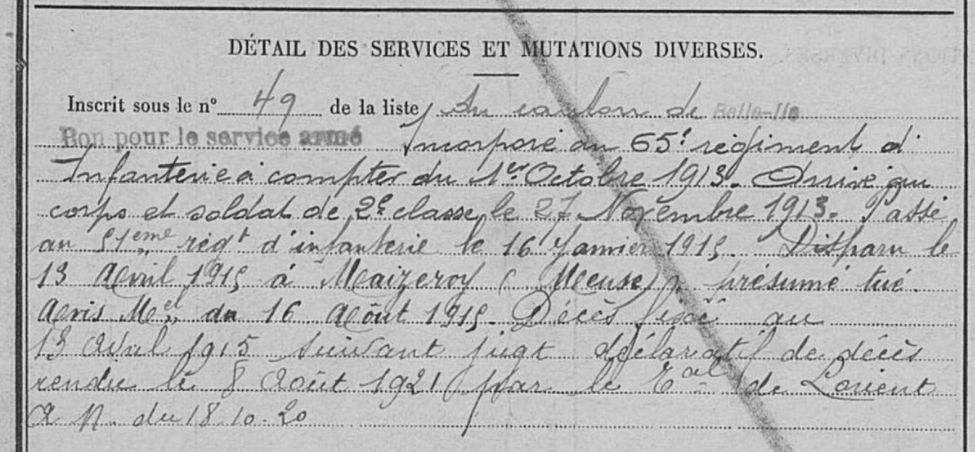 DÉTAIL DES SERVICES ET MUTATIONS DIVERSES.
Inscrit sous le n° 49 de la liste du canton de Belle-Ile
Bon pour le service armé Incorporé au 65e régiment d'
Infanterie à compter du 1er Octobre 1913. Arrivé au
corps et soldat de 2e classe, le 27 Novembre 1913. Passé
au 51eme régt d'infanterie le 16 Janvier 1915. Disparu le
13 Avril 1915 à Maizeroy (Meuse) présumé tué.
Avis Mel du 16 Août 1915. Décès fixé au
13 Avril 1915 suivant jugt déclaratif de décès
rendu le 8 Août 1921 par le Tal de Lorient
du 18.10.20